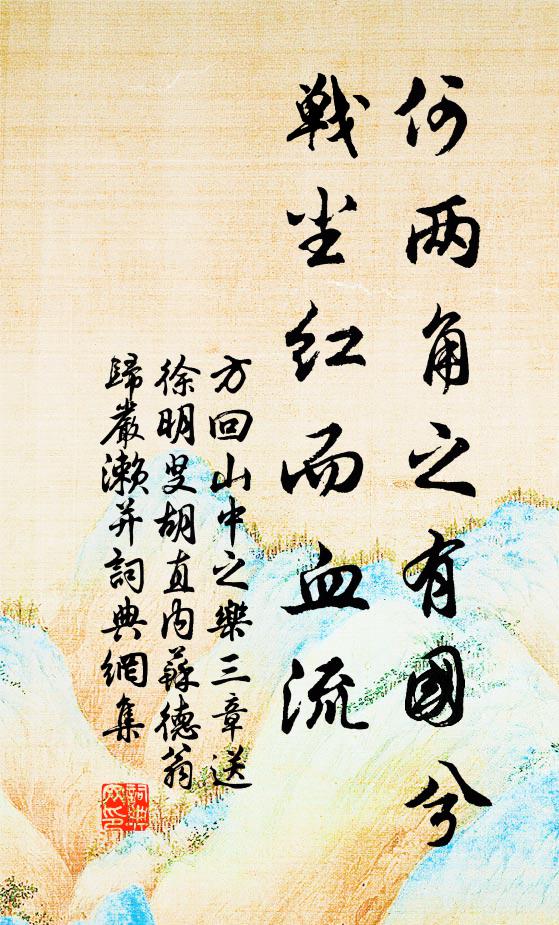 何两角之有國兮
戦尘红而血流
方回山中之樂三章送
徐明叟胡直内蘇德翁
歸嚴瀨并詞典網集